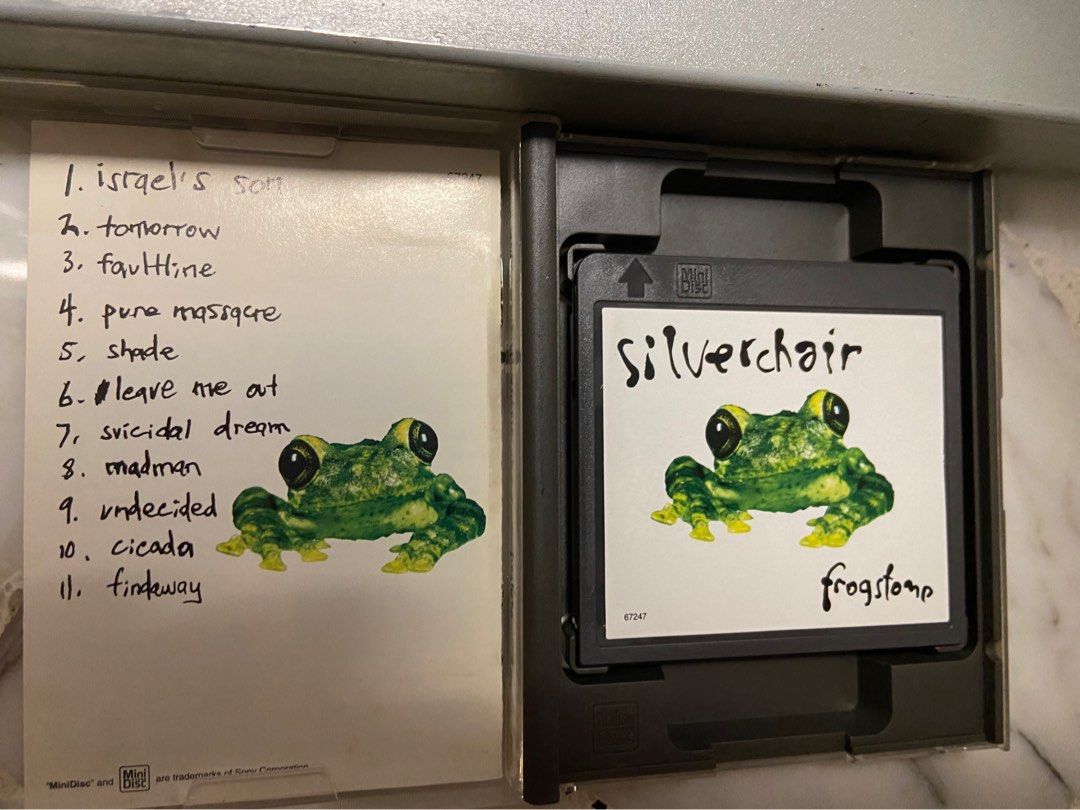 1. israel's son
67247
2. tomorrow
3. faultline
4. pure massacre
5. shade
6. leave me out
7. suicidal dream
8. madman
9. undecided
10. cicada
11. findaway
"MiniDisc" and Mini Disc are trademarks of Sony Corporation
Mini Disc
silverchair
frogstomp
67247